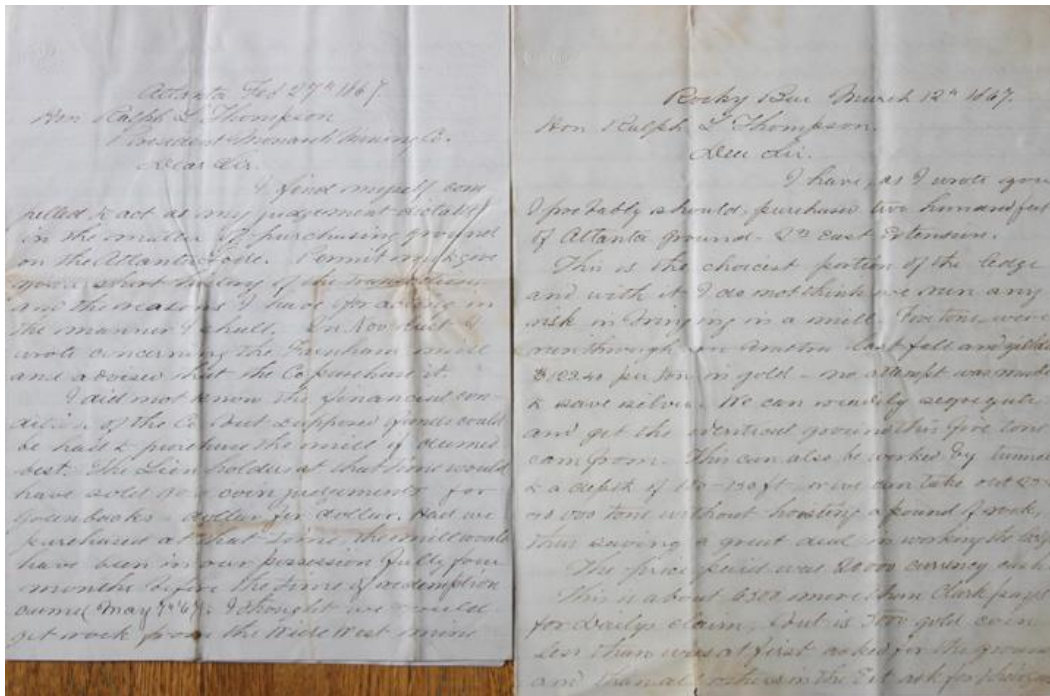 Atlanta Feb 27th 1867
Hon Ralph L Thompson
President Monarch Mining Co.
Dear Sir.
I find myself com
pelled to act as my judgement dictates
in the matter of purchasing ground
on the Atlanta Lode. Permit me to give
you a short history of the transactions
and the reasons I have for acting in
the manner I shall. In Nov last I
wrote concerning the Farnham mill
and advised that the Co purchase it.
I did not know the financial con-
dition of the Co but supposed funds could
be had to purchase the mill if deemed
best. The Lien holders at that time would
have sold coin judgements for
Greenbacks dollar for dollar. Had we
purchased at that time the mill would
have been in our possession fully four
months before the time of redemption
May 7th 67. I thought we could
get rock from the Wide West mine
Rocky Bar March 12th 1867.
Hon Ralph L Thompson.
Dear Sir.
I have, as I wrote you
I probably should, purchased two hundred feet
of Atlanta ground - 2nd East Extension.
This is the choicest portion of the ledge
and with it I do not think we run any
risk in bringing in a mill. Five tons were
run through an arastra last fall and yielded
per ton in gold - no attempt was made
to save silver. We can readily segregate
and get the identical ground this five tons
came from. This can also be worked by tunnel
to a depth of ft. or we can take out
000 tons without hoisting a pound of rock,
thus saving a great deal in working the ledge
The price paid was currency cash.
This is about more than Clark paid
for Dailys claim, but is gold coin
less than was at first asked for the ground
and others in the Ext ask for theirs